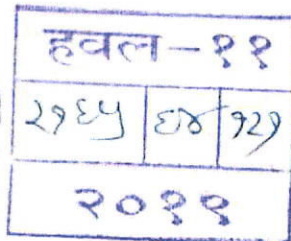 हवल-११
२१६५ ६४ १२१
२०१९